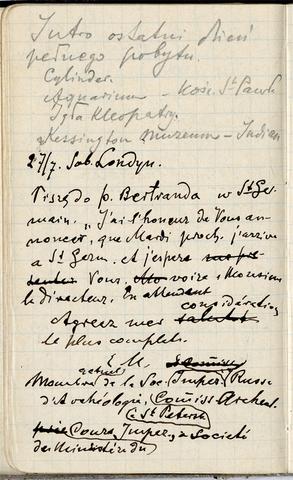 Jutro ostatni dzień
pełnego pobytu.
Cylinder.
Aquarium – Kość. St Pawła
Igła Kleopatry.
Kessington Muzeum – Indian
27/7. Sob. Londyn.
Piszę do p. Bertranda w St Ger-
main. "J'ai l'honneur de Vous an-
noncer, que Mardi proch. j'arrive
a St Germ. et j'espere
Vous, voire, Monsieur
le directeur. En attendant
considération
Agreez mes salutat
le plus complete.
E. M.
Membre actuel de la Soc. Imper. Russe
d'Archéologie, Comiss. Archeol.
(a St Petersb.
Cours, Imper, a Societé